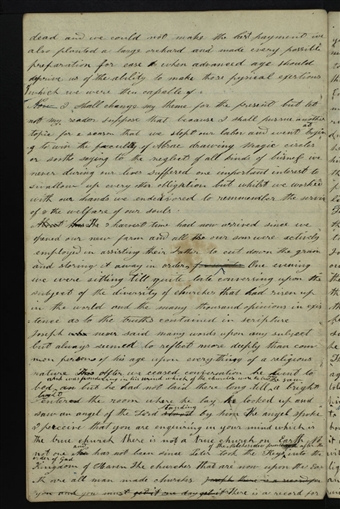 dead and we could not make the last payment we
also planted a large orchard and made every possible
preparation for ease when advanced age should
deprive us of the ability to make those pysical exertions
which we were then capable of
Now I shall change my theme for the present but let
not my reader suppose that because I shall pursue another
topic for a season that we stopt our labor and went at tryin
g to win the faculty of Abrac drawing Magic circles
or sooth saying to the neglect of all kinds of buisness we
never during our lives suffered one important interest to
swallow up every other obligation but whilst we worked
with our hands we endeavored to remember the service
of & the welfare of our souls
About The 2 harvest time had now arrived since we
opened our new farm and all the our sons were actively
employed in assisting their Father to cut down the grain
and storing it away in order One evening
we were sitting till quite late conversing upon the
subject of the diversity of churches that had risen up
in the world and the many thousand opinions in exis
tence as to the truths contained in scripture
Joseph who never said many words upon any subject
but always seemed to reflect more deeply than com
mon persons of his age upon everything of a religious
nature This After we ceased conversation he went to
bed and was pondering in his mind which of the churches were the true one
but he had not laid there long till he saw a bright
light
entered the room where he lay he looked up and
saw an angel of the Lord standing by him The angel spoke
I perceive that you are enquiring in your mind which is
the true church there is not a true church on Earth No
not one and has not been since Peter took the Keys into the
Kingdom of Heaven the churches that are now upon the Ear
th are all man made churches
there is a record for
you